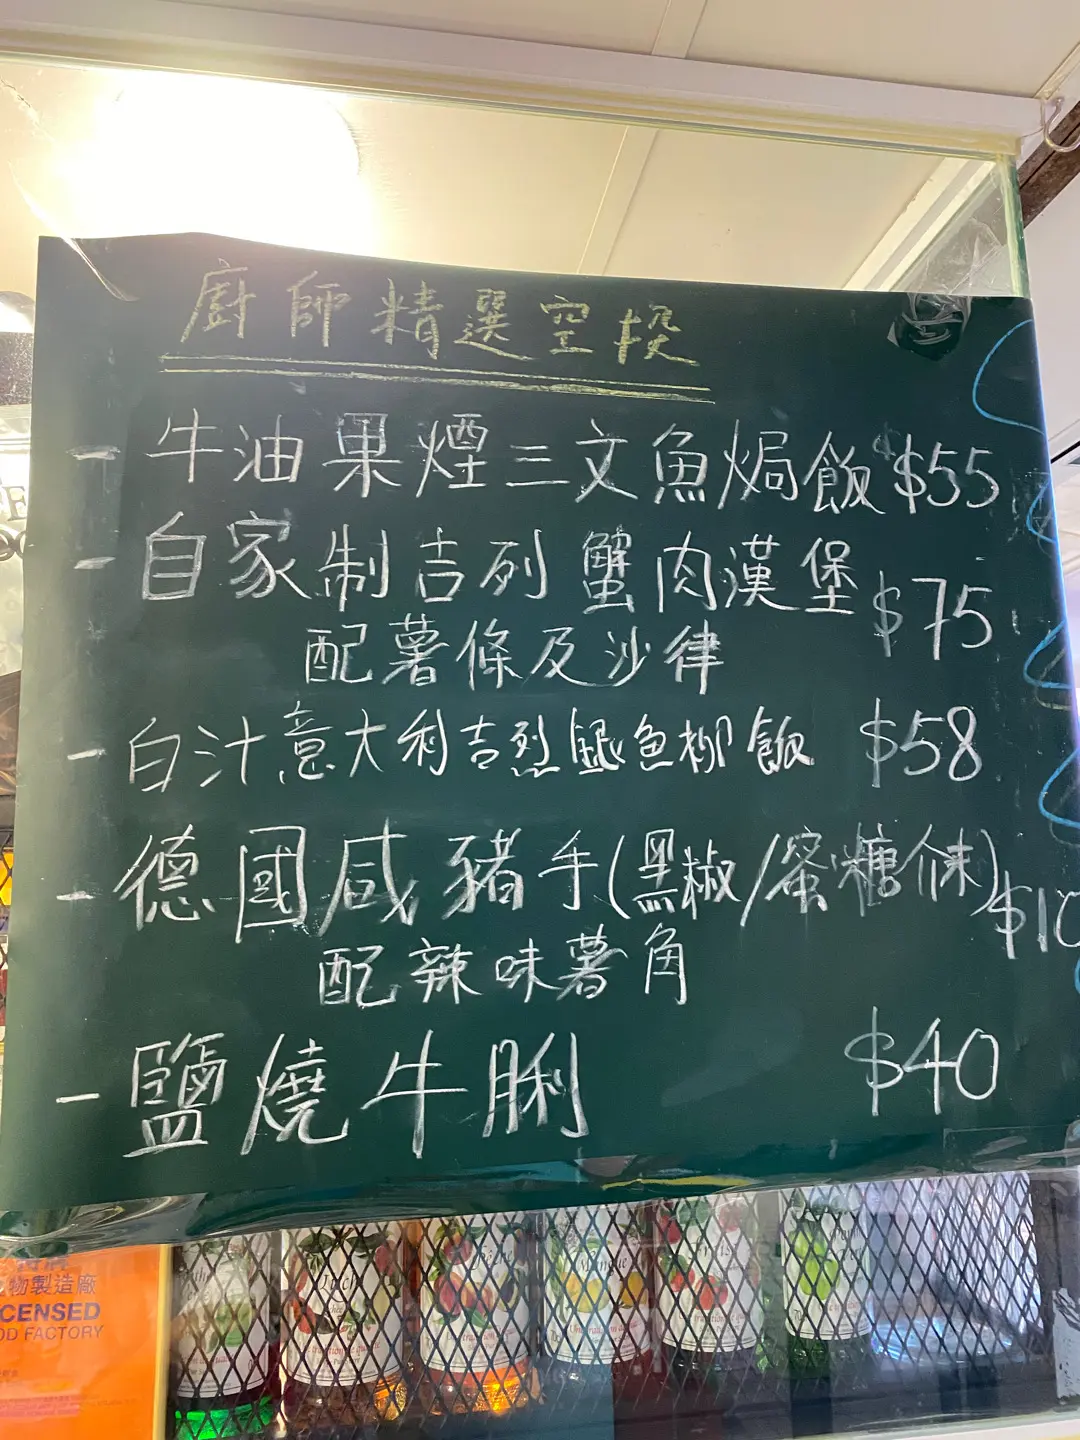 廚師精選空投
- 牛油果煙三文魚焗飯 $55
- 自家制吉列蟹肉漢堡 $75
配薯條及沙律
- 白汁意大利吉烈銀魚柳飯 $58
- 德國咸豬手(黑椒/蜜糖介末) $10
配辣味薯角
- 鹽燒牛脷 $40
物製造廠
CENSED
OD FACTORY